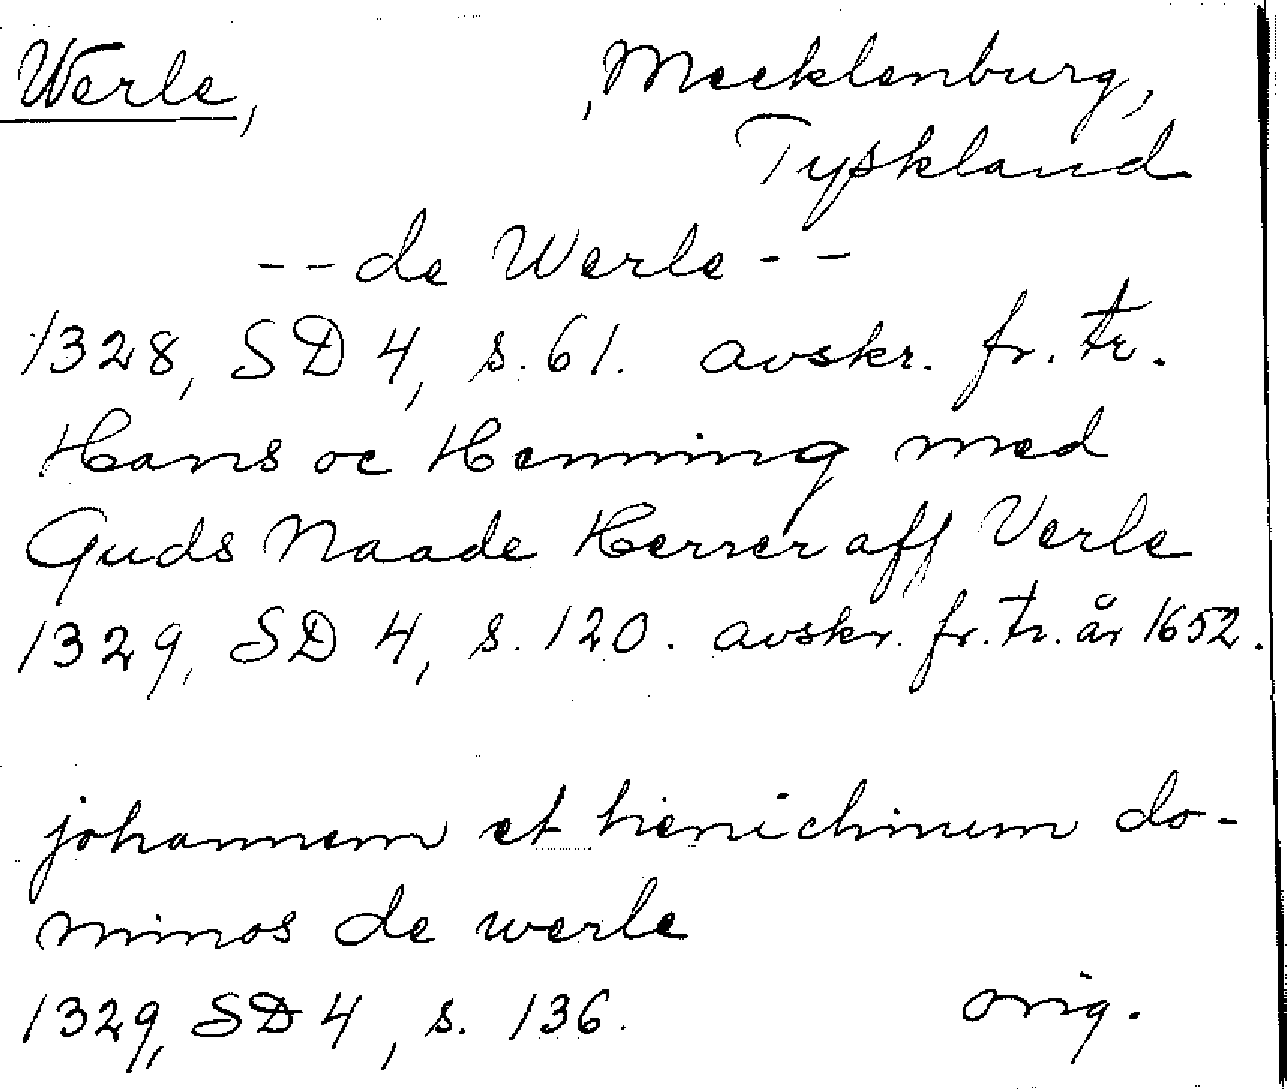 Werle, , Mecklenburg,
Tyskland
-- de Werle --
1328, SD 4, s. 61. avskr. fr. tr.
Hans oc Henning med
Guds Naade Herrer aff Verle
1329, SD 4, s. 120. avskr. fr. tr. år 1652.
johannem et henichinum do-
minos de werle
1329, SD 4, s. 136. orig.